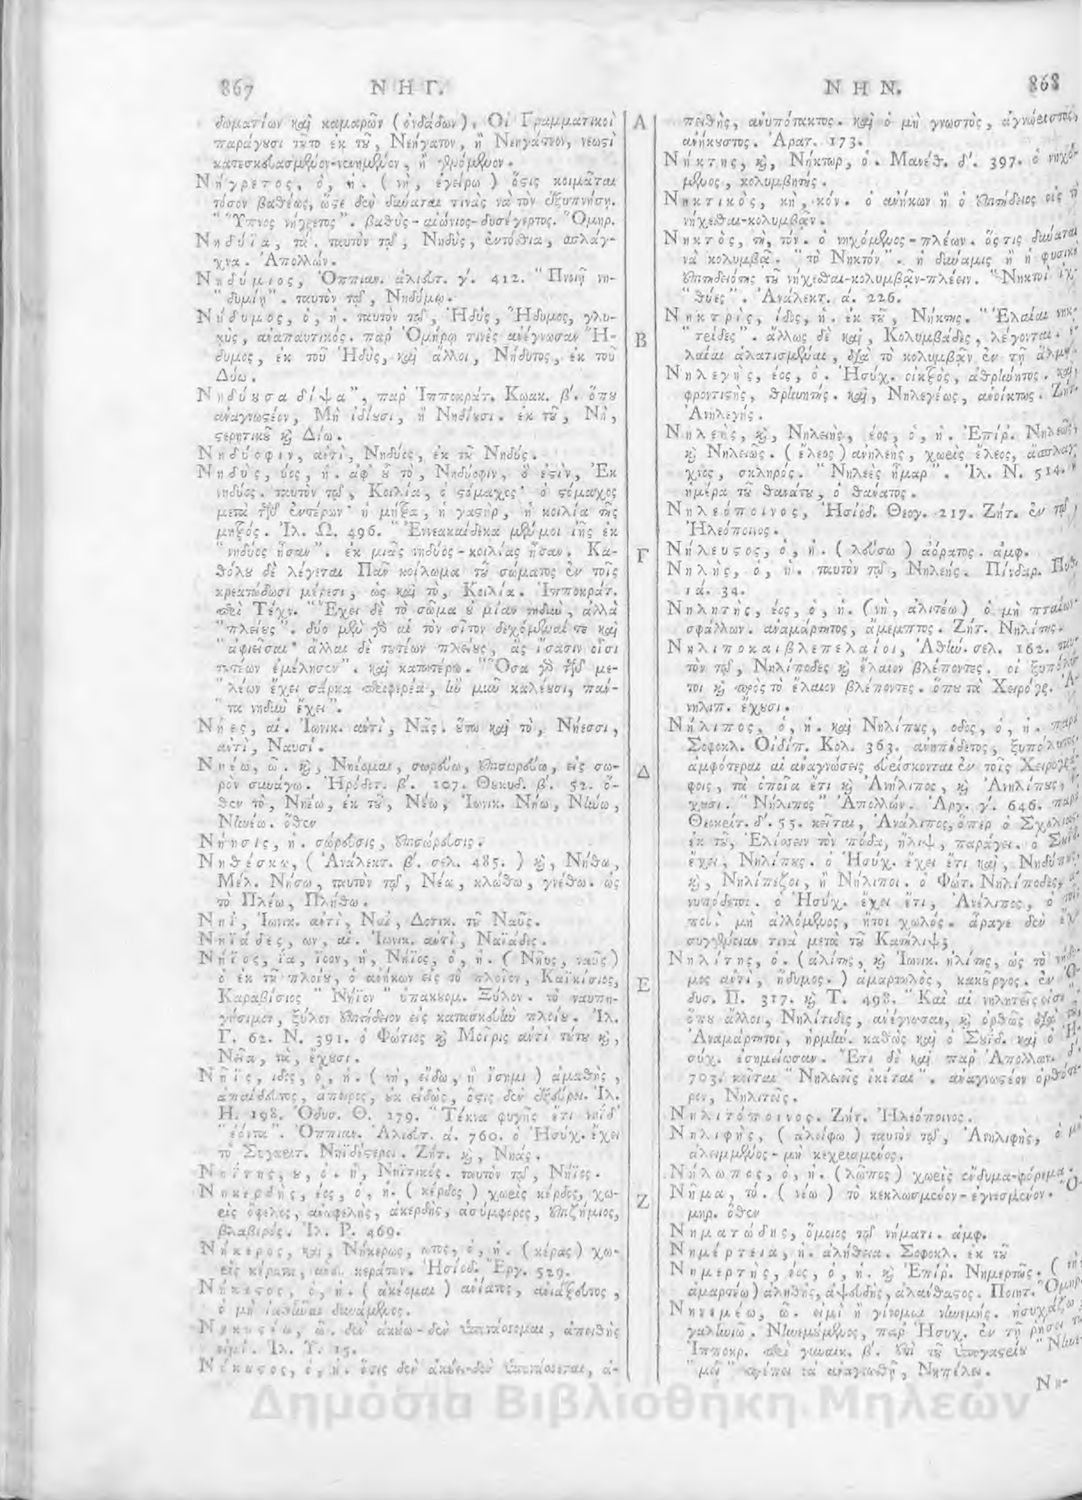 867 ΝΗΓ.
δωματίων καὶ καμαρῶν (ὀνδάδων). Οἱ Γραμματικοὶ
παράγυσι τῦτο ἐκ τῦ, Νεήγατον, ἢ Νεηγάτεον, νεωςὶ
Νήγρετος, ὁ, ἡ. (νη, ἐγείρω) ὅςις κοιμᾶται
τόσον βαθέως, ὥςε δὲν δύναται τινὰς νὰ τὸν ἐξυπνήσῃ.
"Ὕπνος νήγρετος". βαθὺς-αἰώνιος-δυσέγερτος. Ὅμηρ.
Νηδύϊα, τὰ. ταυτὸν τῷ, Νηδὺς, ἐντόσθια, σπλάγ-
χνα. Ἀπολλών.
Νηδύμιος, Ὀππιαν. ἁλιευτ. γ΄. 412. "Πνοιῇ νη-
"δυμίῃ". ταυτὸν τῷ, Νηδύμῳ.
Νήδυμος, ὁ, ἡ. ταυτὸν τῷ, Ἡδὺς, Ἥδυμος, γλυ-
κὺς, ἀναπαυτικός. παρ' Ὁμήρῳ τινὲς ἀνέγνωσαν Ἥ-
δυμος, ἐκ τοῦ Ἡδὺς, καὶ ἄλλοι, Νήδυτος, ἐκ τοῦ
Δύω.
Νηδύυσα δίψα", παρ' Ἱπποκράτ. Κωακ. β΄. ὅπυ
ἀναγνωςέον, Μὴ ἰδίυσι, ἢ Νηδίυσι. ἐκ τῦ, Νὴ,
ςερητικῦ καὶ Δίω.
Νηδύοφιν, ἀντὶ, Νηδύος, ἐκ τῦ Νηδύς.
Νηδὺς, ύος, ἡ. ἀφ' ὗ τὸ, Νηδύοφιν, ὅ ἐςὶν, Ἐκ
νηδύος. ταυτὸν τῷ, Κοιλία, ὁ ςόμαχος· ὁ ςόμαχος
μετὰ τῶν ἐντέρων· ἡ μήτρα, ἡ γαςὴρ, ἡ κοιλία τῆς
μητρός. Ἰλ. Ω. 496. "Ἐννεακαίδεκα μέν μοι ἰῆς ἐκ
"νηδύος ἦσαν". ἐκ μιᾶς νηδύος-κοιλίας ἦσαν. Κα-
θόλυ δὲ λέγεται Πᾶν κοίλωμα τῦ σώματος ἐν τοῖς
κρεατώδεσι μέρεσι, ὡς καὶ τὸ, Κοιλία. Ἱπποκράτ.
περὶ Τέχν. "Ἔχει δὲ τὸ σῶμα ὐ μίαν νηδὺν, ἀλλὰ
"πλείυς". δύο μὲν γὰρ αἱ τὸν σῖτον δεχόμεναί τε καὶ
"ἀφιεῖσαι· ἄλλαι δὲ τυτέων πλείυς, ἃς ἴσασιν οἷσι
τυτέων ἐμέλησεν". καὶ κατωτέρω. "Ὅσα γὰρ τῶν με-
"λέων ἔχει σάρκα περιφερέα, ἣν μῦν καλέυσι, πάν-
"τα νηδὺν ἔχει".
Νῆες, αἱ. Ἰωνικ. ἀντὶ, Νᾶες. ὕτω καὶ τὸ, Νήεσσι,
ἀντὶ, Ναυσί.
Νηέω, ῶ. καὶ, Νηέομαι, σωρεύω, ἐπισωρεύω, εἰς σω-
ρὸν συνάγω. Ἡρόδοτ. β΄. 107. Θυκυδ. β΄. 52. ὅ-
θεν τὸ, Νηέω, ἐκ τῦ, Νέω, Ἰωνικ. Νήω, Νηνέω,
Νηνέω. ὅθεν
Νήησις, ἡ. σώρευσις, ἐπισώρευσις.
Νηθέσκω, (Ἀνάλεκτ. β΄. σελ. 485.) καὶ, Νήθω,
Μέλ. Νήσω, ταυτὸν τῷ, Νέω, κλώθω, γνέθω. ὡς
τὸ Πλέω, Πλήθω.
Νηῒ, Ἰωνικ. ἀντὶ, Ναῒ, Δοτικ. τῦ Ναῦς.
Νηϊάδες, ων, αἱ. Ἰωνικ. ἀντὶ, Ναϊάδες.
Νήϊος, ΐα, ϊον, ἢ, Νήϊος, ὁ, ἡ. (Νῆυς, ναῦς)
ὁ ἐκ τῦ πλοίυ, ὁ ἀνήκων εἰς τὸ πλοῖον, Καϊκίσιος,
Καραβίσιος "Νήϊον" ὑπακυομ. Ξύλον. τὸ ναυπη-
γήσιμον, ξύλον ἐπιτήδειον εἰς κατασκευὴν πλοίυ. Ἰλ.
Γ. 62. Ν. 391. ὁ Φώτιος καὶ Μοῖρις ἀντὶ τύτυ καὶ,
Νήϊα, τὰ, ἔχυσι.
Νῆϊς, ϊδος, ὁ, ἡ. (νη, εἴδω, ἢ ἴσημι) ἀμαθὴς,
ἀπαίδευτος, ἄπειρος, ὐκ εἰδὼς, ὅςις δὲν ἐξεύρει. Ἰλ.
Η. 198. Ὀδυσ. Θ. 179. "Τέκνα φυγῆς ἔτι νήϊδ'
"ἐόντα". Ὀππιαν. Ἁλιευτ. ά. 760. ὁ Ἡσύχ. ἔχει
τὸ Συγκριτ. Νηϊδέςεροι. Ζήτ. καὶ, Νηάς.
Νηΐτης, υ, ὁ. ἢ, Νηϊτικός. ταυτὸν τῷ, Νήϊος.
Νηκερδὴς, έος, ὁ, ἡ. (κέρδος) χωρὶς κέρδος, χω-
ρὶς ὄφελος, ἀνωφελὴς, ἀκερδὴς, ἀσύμφορος, ἐπιζήμιος,
βλαβερός. Ἰλ. Ρ. 469.
Νήκερος, καὶ, Νήκερως, ωτος, ὁ, ἡ. (κέρας) χω-
ρὶς κέρατα, ἄνευ κεράτων. Ἡσίοδ. Ἔργ. 529.
Νήκεςος, ὁ, ἡ. (ἀκέομαι) ἀνίατος, ἀνιάτρευτος,
ὁ μὴ ἰαθῆναι δυνάμενος.
Νηκυςέω, ῶ. δὲν ἀκύω-δὲν ὑποτάσσομαι, ἀπειθὴς
εἰμί. Ἰλ. Υ. 15.
Νήκυςος, ὁ, ἡ. ὅςις δὲν ἀκύει-δὲν ὑποτάσσεται, ἀ-
Α
Β
Γ
Δ
Ε
Ζ
ΝΗΝ. 868
πειθὴς, ἀνυπότακτος. καὶ ὁ μὴ γνωστὸς, ἀγνώριστος,
ἀνήκυστος. Ἀρατ. 173.
Νήκτης, καὶ, Νήκτωρ, ὁ. Μανέθ. δ΄. 397. ὁ νηχό-
μενος, κολυμβητής.
Νηκτικὸς, κὴ, κόν. ὁ ἀνήκων ἢ ὁ ἐπιτήδειος εἰς τὸ
νήχεσθαι-κολυμβᾷν.
Νηκτὸς, τὴ, τόν. ὁ νηχόμενος-πλέων. ὅςτις δύναται
νὰ κολυμβᾷ. "τὸ Νηκτόν". ἡ δύναμις ἢ ἡ φυσικὴ
ἐπιτηδειότης τῦ νήχεσθαι-κολυμβᾷν-πλέειν. "Νηκτοὶ ἰχ-
"θύες". Ἀνάλεκτ. ά. 226.
Νηκτρὶς, ίδος, ἡ. ἐκ τῦ, Νήκτης. "Ἐλαίαι νηκ-
"τρίδες". ἄλλως δὲ καὶ, Κολυμβάδες, λέγονται.
λαίαι ἀλατισμέναι, διὰ τὸ κολυμβᾷν ἐν τῇ ἅλμῃ.
Νηλεγὴς, έος, ὁ. Ἡσύχ. οἰκτρὸς, ἀθρήνητος. καὶ
φροντιςὴς, θρηνητής. καὶ, Νηλεγέως, ἀνοίκτως. Ζήτ.
Ἀνηλεγής.
Νηλεὴς, καὶ, Νηλειὴς, έος, ὁ, ἡ. Ἐπίρ. Νηλεῶς,
καὶ Νηλειῶς. (ἔλεος) ἀνηλεὴς, χωρὶς ἔλεος, ἄσπλαγ-
χνος, σκληρός. "Νηλεὲς ἦμαρ". Ἰλ. Ν. 514.
ἡμέρα τῦ θανάτυ, ὁ θάνατος.
Νηλεόποινος, Ἡσίοδ. Θεογ. 217. Ζήτ. ἐν τῷ,
Ἠλεόποινος.
Νήλευςος, ὁ, ἡ. (λεύσω) ἀόρατος. ἀμφ.
Νηλὴς, ὁ, ἡ. ταυτὸν τῷ, Νηλεής. Πίνδαρ. Πυθ.
ιά. 34.
Νηλητὴς, έος, ὁ, ἡ. (νὴ, ἀλιτέω) ὁ μὴ πταίων-
σφάλλων. ἀναμάρτητος, ἄμεμπτος. Ζήτ. Νηλίτης.
Νηλιποκαιβλεπελαίοι, Ἀθήν. σελ. 162.
τὸν τῷ, Νηλίποδες καὶ ἔλαιον βλέποντες. οἱ ξυπόλυ-
τοι καὶ πρὸς τὸ ἔλαιον βλέποντες. ὅπυ τὰ Χειρόγρ. Ἀ-
νηλιπ. ἔχυσι.
Νήλιπος, ὁ, ἡ. καὶ Νηλίπυς, οδος, ὁ, ἡ. παρὰ
Σοφοκλ. Οἰδίπ. Κολ. 363. ἀνυπόδετος, ξυπόλυτος.
ἀμφότεραι αἱ ἀναγνώσεις εὑρίσκονται ἐν τοῖς Χειρογρά-
φοις, τὰ ὁποῖα ἔτι καὶ Ἀνήλιπος, καὶ Ἀνηλίπυς,
χυσι. "Νήλιπος" Ἀπολλών. Ἀργ. γ΄. 646. παρὰ
Θεοκρίτ. δ΄. 55. κεῖται, Ἀνάλιπος, ὅπερ ὁ Σχολιας.
ἔχει, Νηλίπυς. ὁ Ἡσύχ. ἔχει ἔτι καὶ, Νηδύπυς,
καὶ, Νηλίπεζοι, ἢ Νήλιποι. ὁ Φώτ. Νηλίποδες,
νυπόδετοι. ὁ Ἡσύχ. ἔχει ἔτι, Ἀνέλιπος, ὁ
πού· μὴ ἁλλόμενος, ἤτοι χωλός. ἄραγε δὲν
συγγένειαν τινὰ μετὰ τῦ Κατῆλιψ;
Νηλίτης, ὁ. (ἀλίτης, καὶ Ἰωνικ. ἠλίτης, ὡς τὸ νήδυ-
μος ἀντὶ, ἥδυμος.) ἁμαρτωλὸς, κακῦργος. ἐν
δυσ. Π. 317. καὶ Τ. 498. "Καὶ αἱ νηλητεῖς εἰσὶ
ὅπυ ἄλλοι, Νηλίτιδες, ἀνέγνωσαν, καὶ ὀρθῶς διὰ τὸ
Ἀναμάρτητοι, ἡρμήν. καθὼς καὶ ὁ Σουΐδ. καὶ ὁ Ἡ-
σύχ. ἐσημείωσαν. Ἔτι δὲ καὶ παρ' Ἀπολλων. δ΄.
703. κεῖται "Νηλειεῖς ἱκέται". ἀναγνωςέον ὀρθότε-
ρον, Νηλιτεῖς.
Νηλιτόποινος. Ζήτ. Ἠλεόποινος.
Νηλιφὴς, (ἀλείφω) ταυτὸν τῷ, Ἀνηλιφὴς, ὁ μὴ
ἀλειμμένος-μὴ κεχρισμένος.
Νήλωπος, ὁ, ἡ. (λῶπος) χωρὶς ἔνδυμα-φόρεμα.
Νῆμα, τό. (νέω) τὸ κεκλωσμένον-ἐγνεσμένον. Ὅ-
μηρ. ὅθεν
Νηματώδης, ὅμοιος τῷ νήματι. ἀμφ.
Νημέρτεια, ἡ. ἀλήθεια. Σοφοκλ. ἐκ τῦ
Νημερτὴς, έος, ὁ, ἡ. καὶ Ἐπίρ. Νημερτῶς. (νη,
ἁμαρτάνω) ἀληθὴς, ἀψευδὴς, ἀλάνθαςος. Ποιητ. Ὅμηρ.
Νηνεμέω, ῶ. εἰμὶ ἢ γίνομαι νήνεμος. ἡσυχάζω,
γαληνιῶ. Νηνεμούμενος, παρ' Ἡσυχ. ἐν τῇ ῥήσει τῦ
Ἱπποκρ. περὶ γυναικ. β΄. ἐπὶ τῦ ὑπογαςρίυ "Νηνε-
"μεῖ" πρέπει νὰ ἀναγνωσθῇ, Νηπέλει.
Νη-
Δημόσια Βιβλιοθήκη Μηλεών